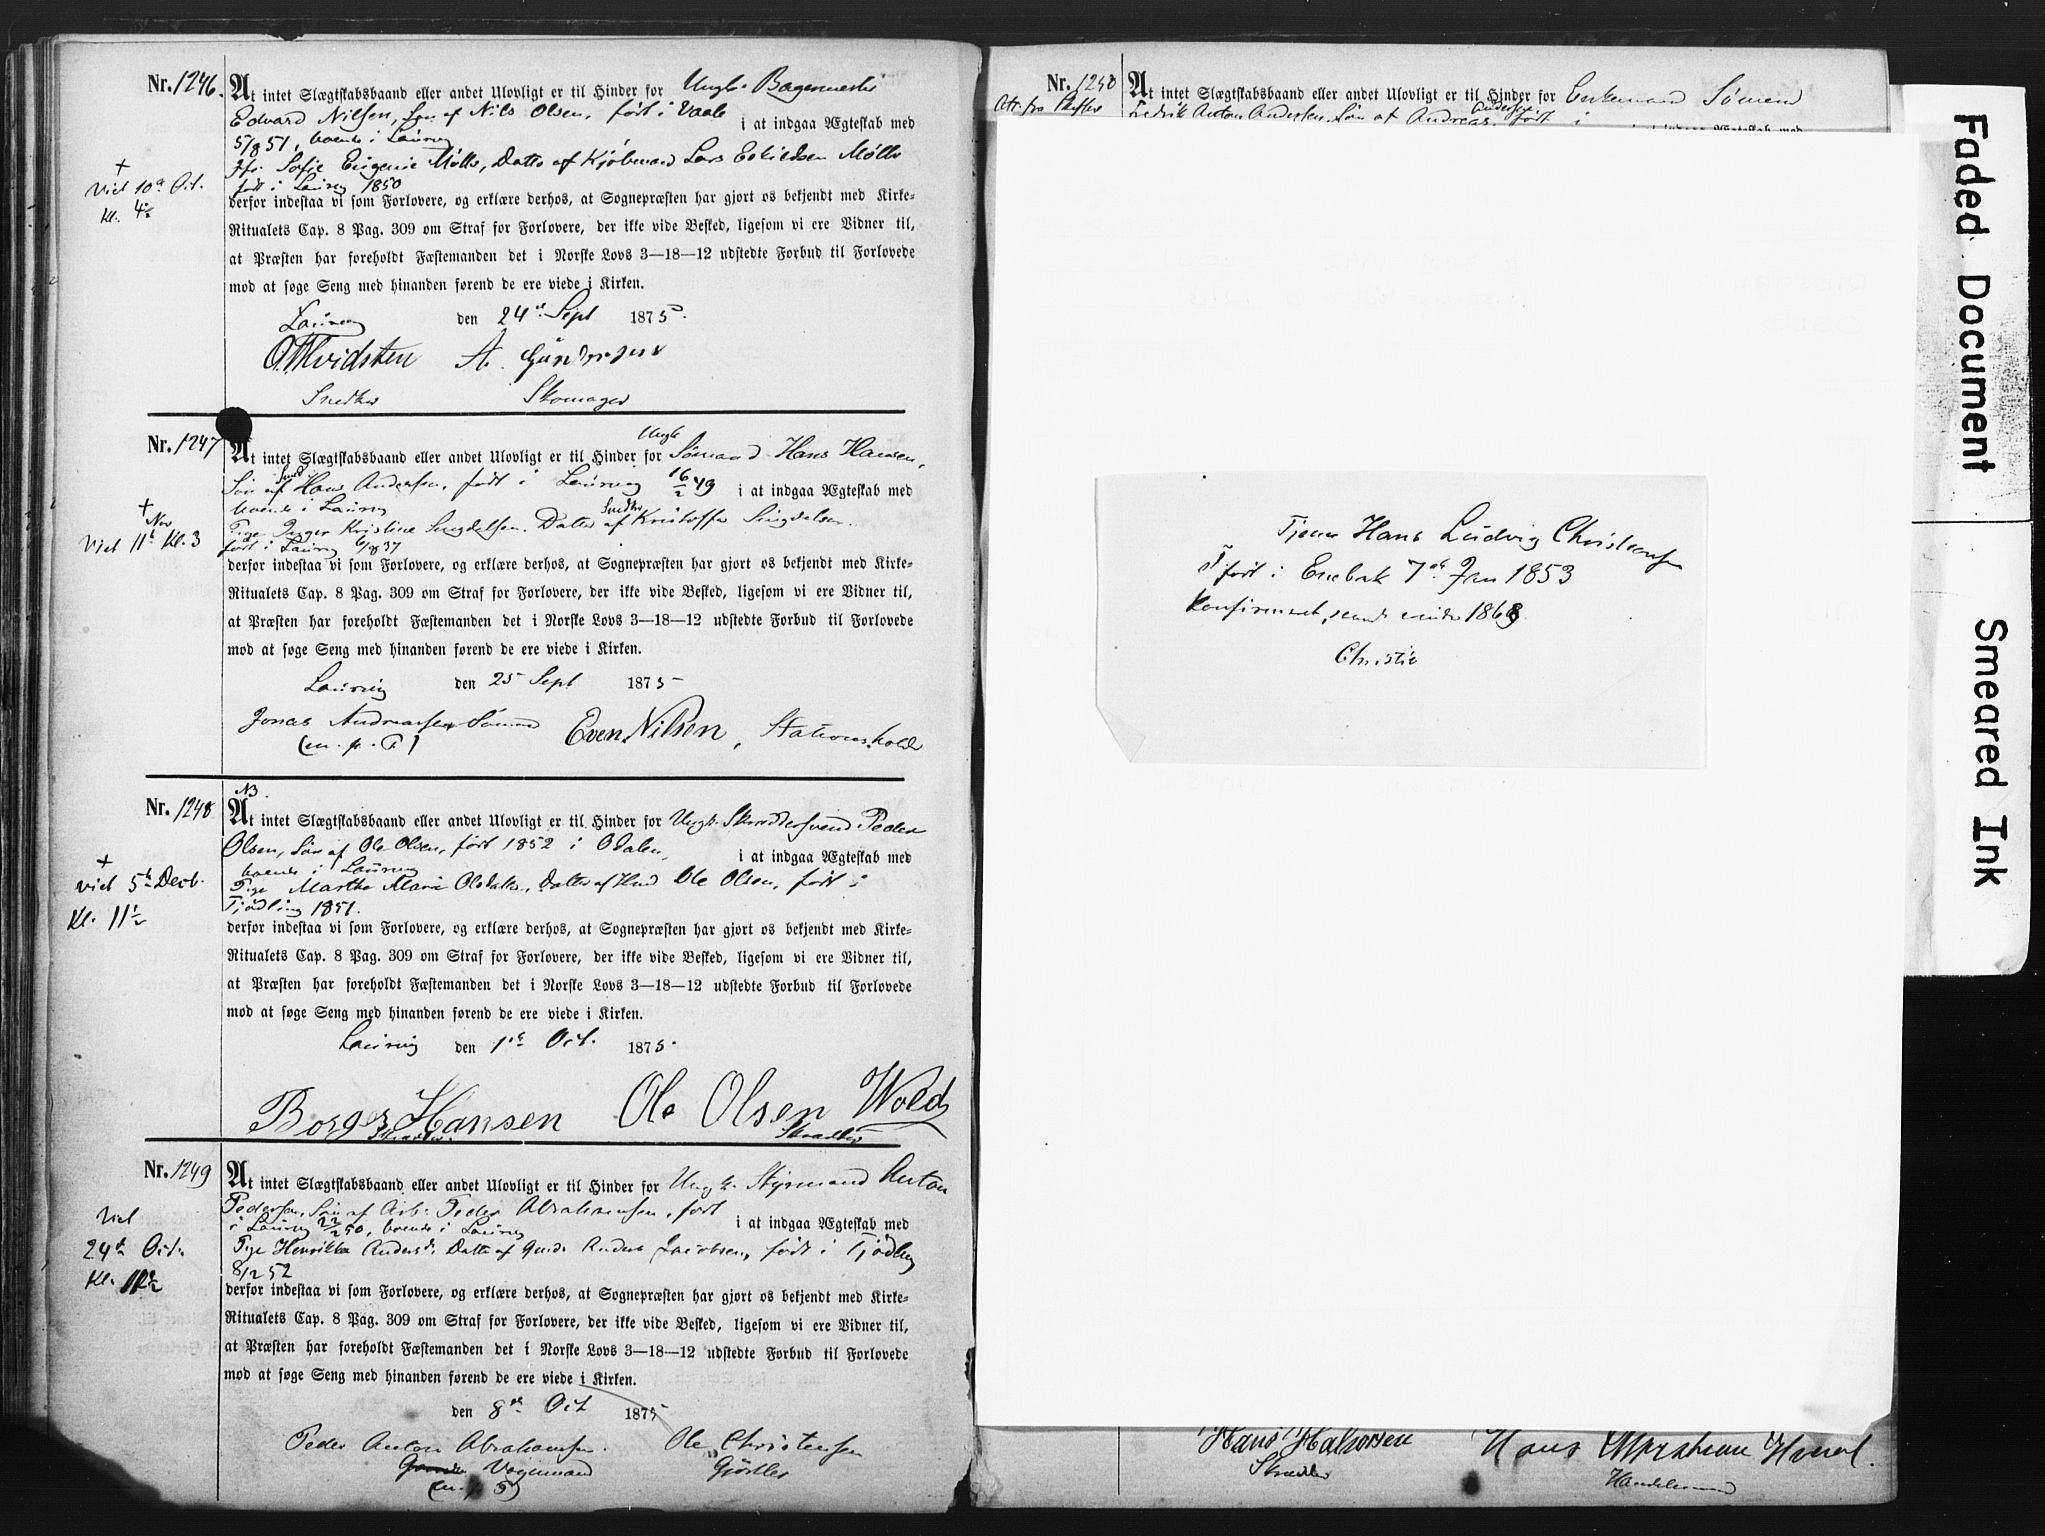 Nr. 1246. At intet Slægtskabsbaand eller andet Ulovligt er til Hinder for Ungk. Bagermester
Edvard Nilsen, Søn af Nils Olsen, født i Vaale
i at indgaa Ægteskab med
5/8 51, boende i Laurvig
Sofie Eugenie Møller, Datter af Kjøbmand Lars Eskildsen Møller
født i Laurvig 1850
+
Viet 10de Oct.
Kl. 4½
derfor indestaa vi som Forlovere, og erklære derhos, at Sognepræsten har gjort os bekjendt med Kirke-
Ritualets Cap. 8 Pag. 309 om Straf for Forlovere, der ikke vide Besked, ligesom vi ere Vidner til,
at Præsten har foreholdt Fæstemanden det i Norske Lovs 3—18—12 udstedte Forbud til Forlovede
mod at søge Seng med hinanden førend de ere viede i Kirken.
Laurvig den 24de Sept 1875.
Hvidsten A. Gundersen
Snedker Skomager
Nr. 1247 At intet Slægtskabsbaand eller andet Ulovligt er til Hinder for Ungk Sømand Hans Hansen,
Søn af Hans Andersen, født i Laurvig 16/2 49 i at indgaa Ægteskab med
boende i Laurvig
Pige Kristine Datter af Snedker Kristoffer
født i Laurvig
+
Nov
Viet 11te Kl. 3
derfor indestaa vi som Forlovere, og erklære derhos, at Sognepræsten har gjort os bekjendt med Kirke-
Ritualets Cap. 8 Pag. 309 om Straf for Forlovere, der ikke vide Besked, ligesom vi ere Vidner til,
at Præsten har foreholdt Fæstemanden det i Norske Lovs 3—18—12 udstedte Forbud til Forlovede
mod at søge Seng med hinanden førend de ere viede i Kirken.
Laurvig den 25 Sept 1875
Jonas Andreassen Sømand Even Nilsen, Stationsholder
(m. p. P.)
NB.
Nr. 1248 At intet Slægtskabsbaand eller andet Ulovligt er til Hinder for Ungk. Skræddersvend Peder
Olsen, Søn af Ole Olsen, født 1852 i Odalen, i at indgaa Ægteskab med
boende i Laurvig
Pige Marthe Marie Olsdatter, Datter af Ole Olsen, født i
Tjødling 1851.
+
viet 5te Decb.
Kl. 11½
derfor indestaa vi som Forlovere, og erklære derhos, at Sognepræsten har gjort os bekjendt med Kirke-
Ritualets Cap. 8 Pag. 309 om Straf for Forlovere, der ikke vide Besked, ligesom vi ere Vidner til,
at Præsten har foreholdt Fæstemanden det i Norske Lovs 3—18—12 udstedte Forbud til Forlovede
mod at søge Seng med hinanden førend de ere viede i Kirken.
Laurvig den 1ste Oct. 1875.
Borger Hansen Ole Olsen Wold
Skrædder. Skrædder
Nr. 1249 At intet Slægtskabsbaand eller andet Ulovligt er til Hinder for Ungk. Styrmand Anton
Pedersen, Søn af Arb. Peder Abrahamsen, født
i at indgaa Ægteskab med
i Laurvig 22/2 50, boende i Laurvig
Pige Henrikke Andersd. Datter af Gmd. Anders Jacobsen, født i Tjødling
8/12 52
Viet
24de Oct.
Kl. 11½
derfor indestaa vi som Forlovere, og erklære derhos, at Sognepræsten har gjort os bekjendt med Kirke-
Ritualets Cap. 8 Pag. 309 om Straf for Forlovere, der ikke vide Besked, ligesom vi ere Vidner til,
at Præsten har foreholdt Fæstemanden det i Norske Lovs 3—18—12 udstedte Forbud til Forlovede
mod at søge Seng med hinanden førend de ere viede i Kirken.
den 8de Oct 1875
Peder Anton Abrahamsen. Ole Christensen
Vognmand Gjørtler
Nr. 1250 At intet Slægtskabsbaand eller andet Ulovligt er til Hinder for Enkemand Sømand
Fredrik Anton Andersen, Søn af Andreas Andersen født i
Tjener Hans Ludvig Christensen
født i Enebak 7de Jan 1853
Konfirmeret, 1868
Christie
Hans Halvorsen Hans Hverel.
Skrædder Handelsmand
Faded Document
Smeared Ink